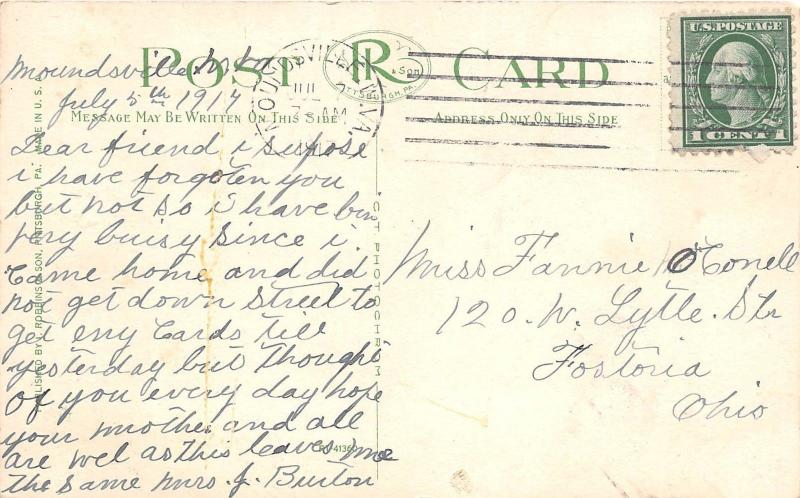 POST CARD
R
& Son
PITTSBURGH, PA.
U.S. POSTAGE
1 CENT 1
MOUNDSVILLE W. VA.
JUL
AM
MESSAGE MAY BE WRITTEN ON THIS SIDE
ADDRESS ONLY ON THIS SIDE
Moundsville
July 5th 1917
Dear friend i supose
i have forgoten you
but not so i have bin
very buisy since i
Came home and did
not get down Street to
get eny Cards till
yesterday but Thought
of you every day hope
your mother and all
are wel as this leaves me
the same Mrs. J. Burton
Miss Fannie O'Conell
120. W. Lytle. Str
Fostoria
Ohio
PUBLISHED BY I. ROBBINS & SON, PITTSBURGH, PA. MADE IN U. S. A.
OCT PHOTOCHROM
R-41360